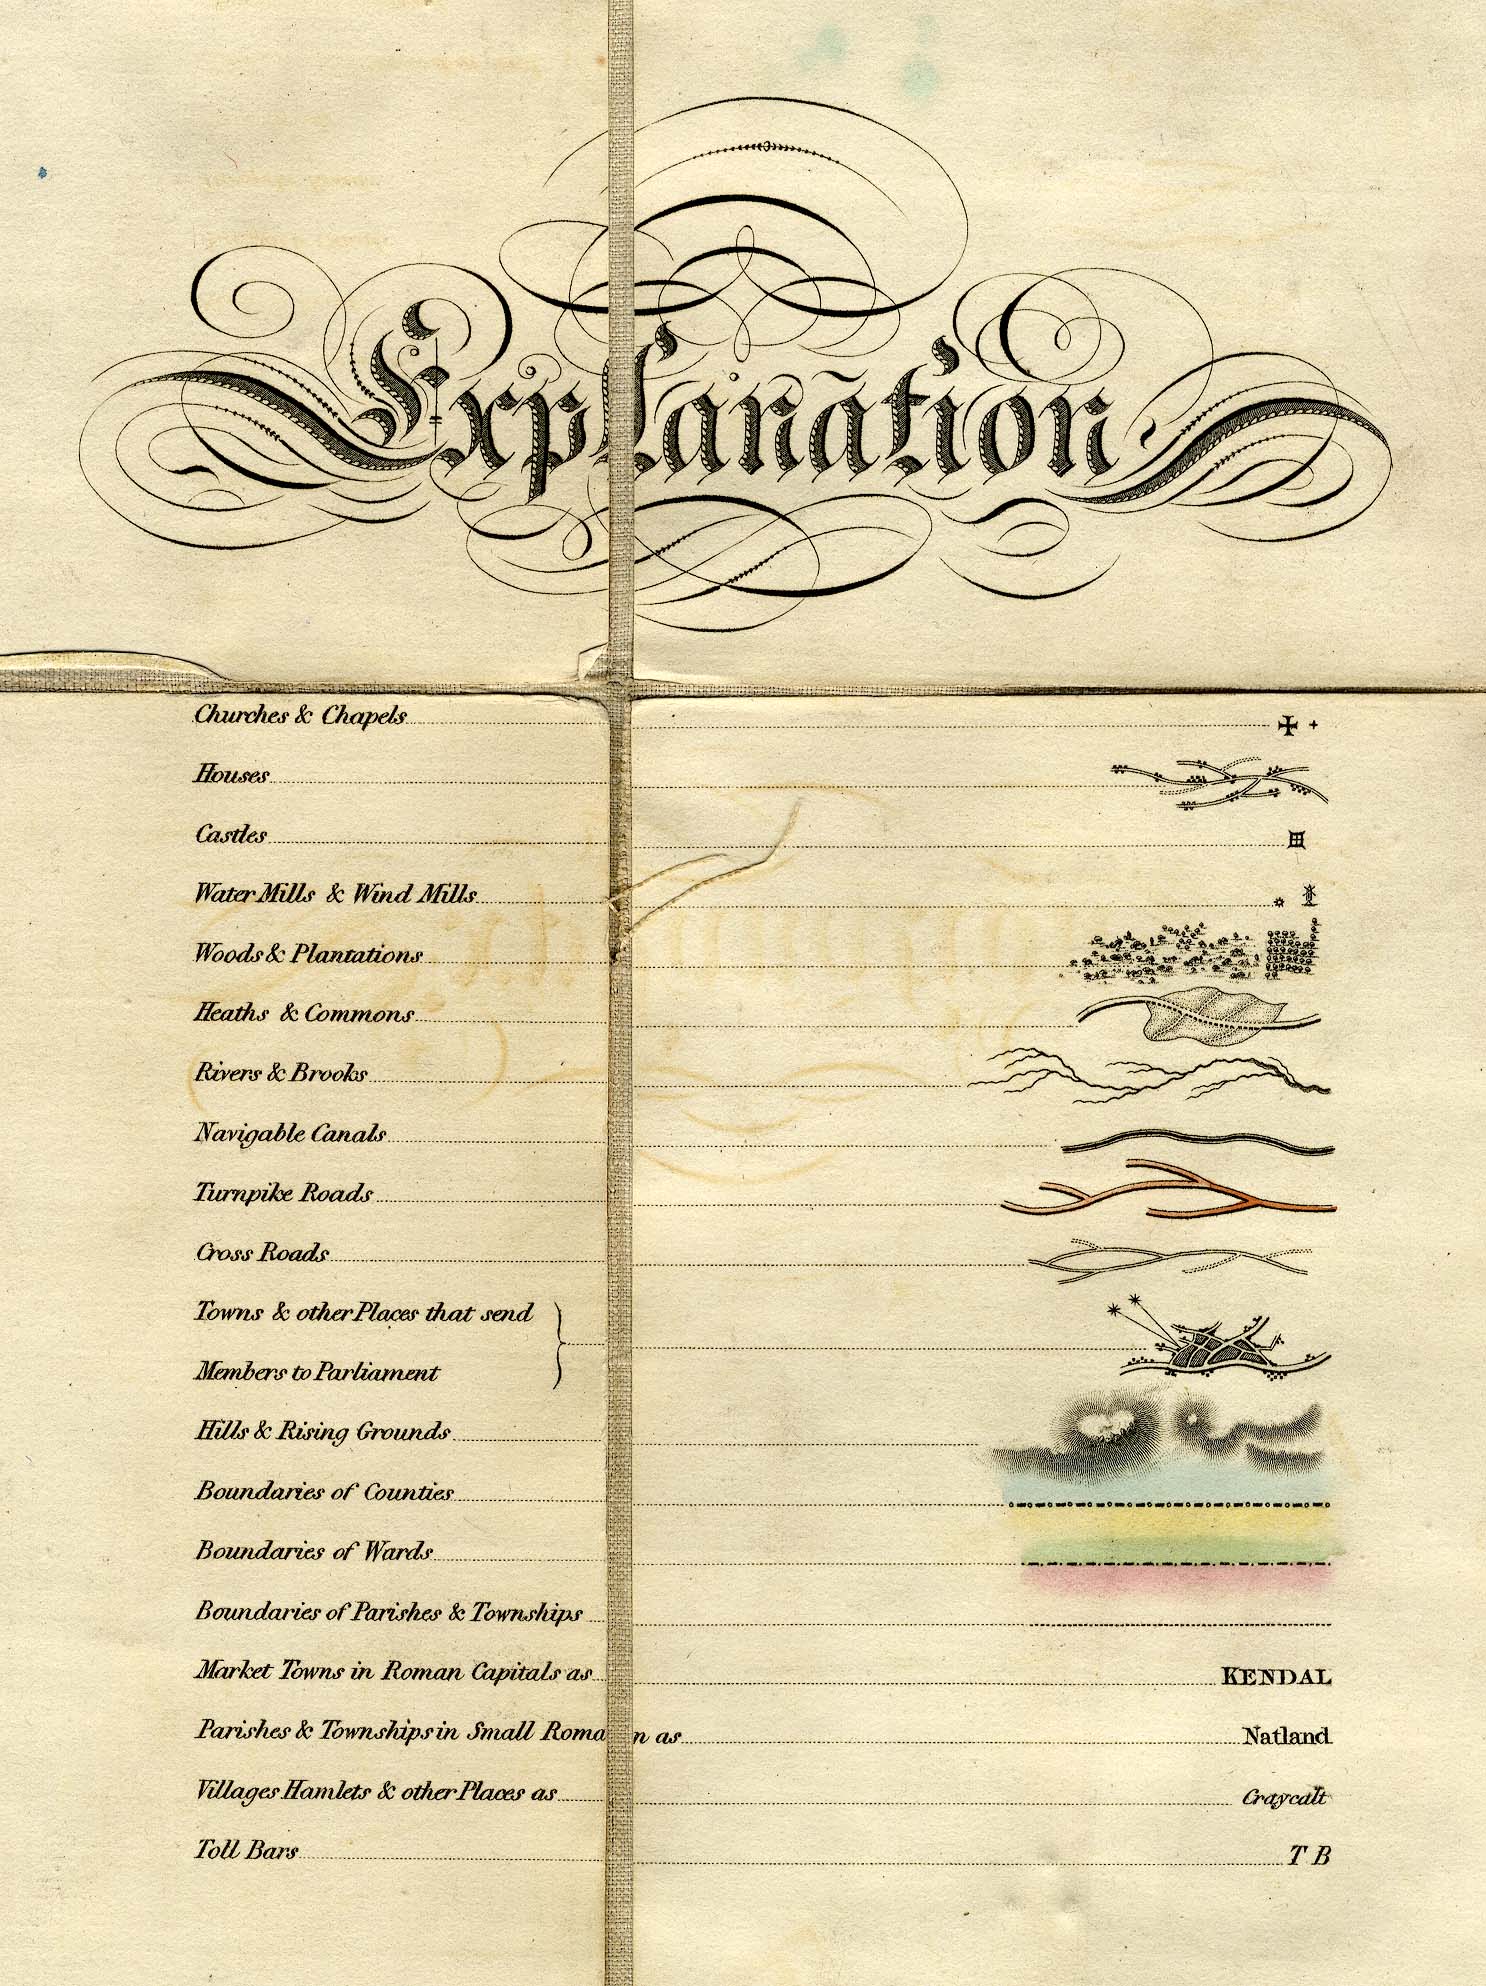 Explanation
Churches & Chapels
Houses
Castles
Water Mills & Wind Mills
Woods & Plantations
Heaths & Commons
Rivers & Brooks
Navigable Canals
Turnpike Roads
Cross Roads
Towns & other Places that send
Members to Parliament
Hills & Rising Grounds
Boundaries of Counties
Boundaries of Wards
Boundaries of Parishes & Townships
Market Towns in Roman Capitals as KENDAL
Parishes & Townships in Small Roman as Natland
Villages Hamlets & other Places as Craycalt
Toll Bars T B